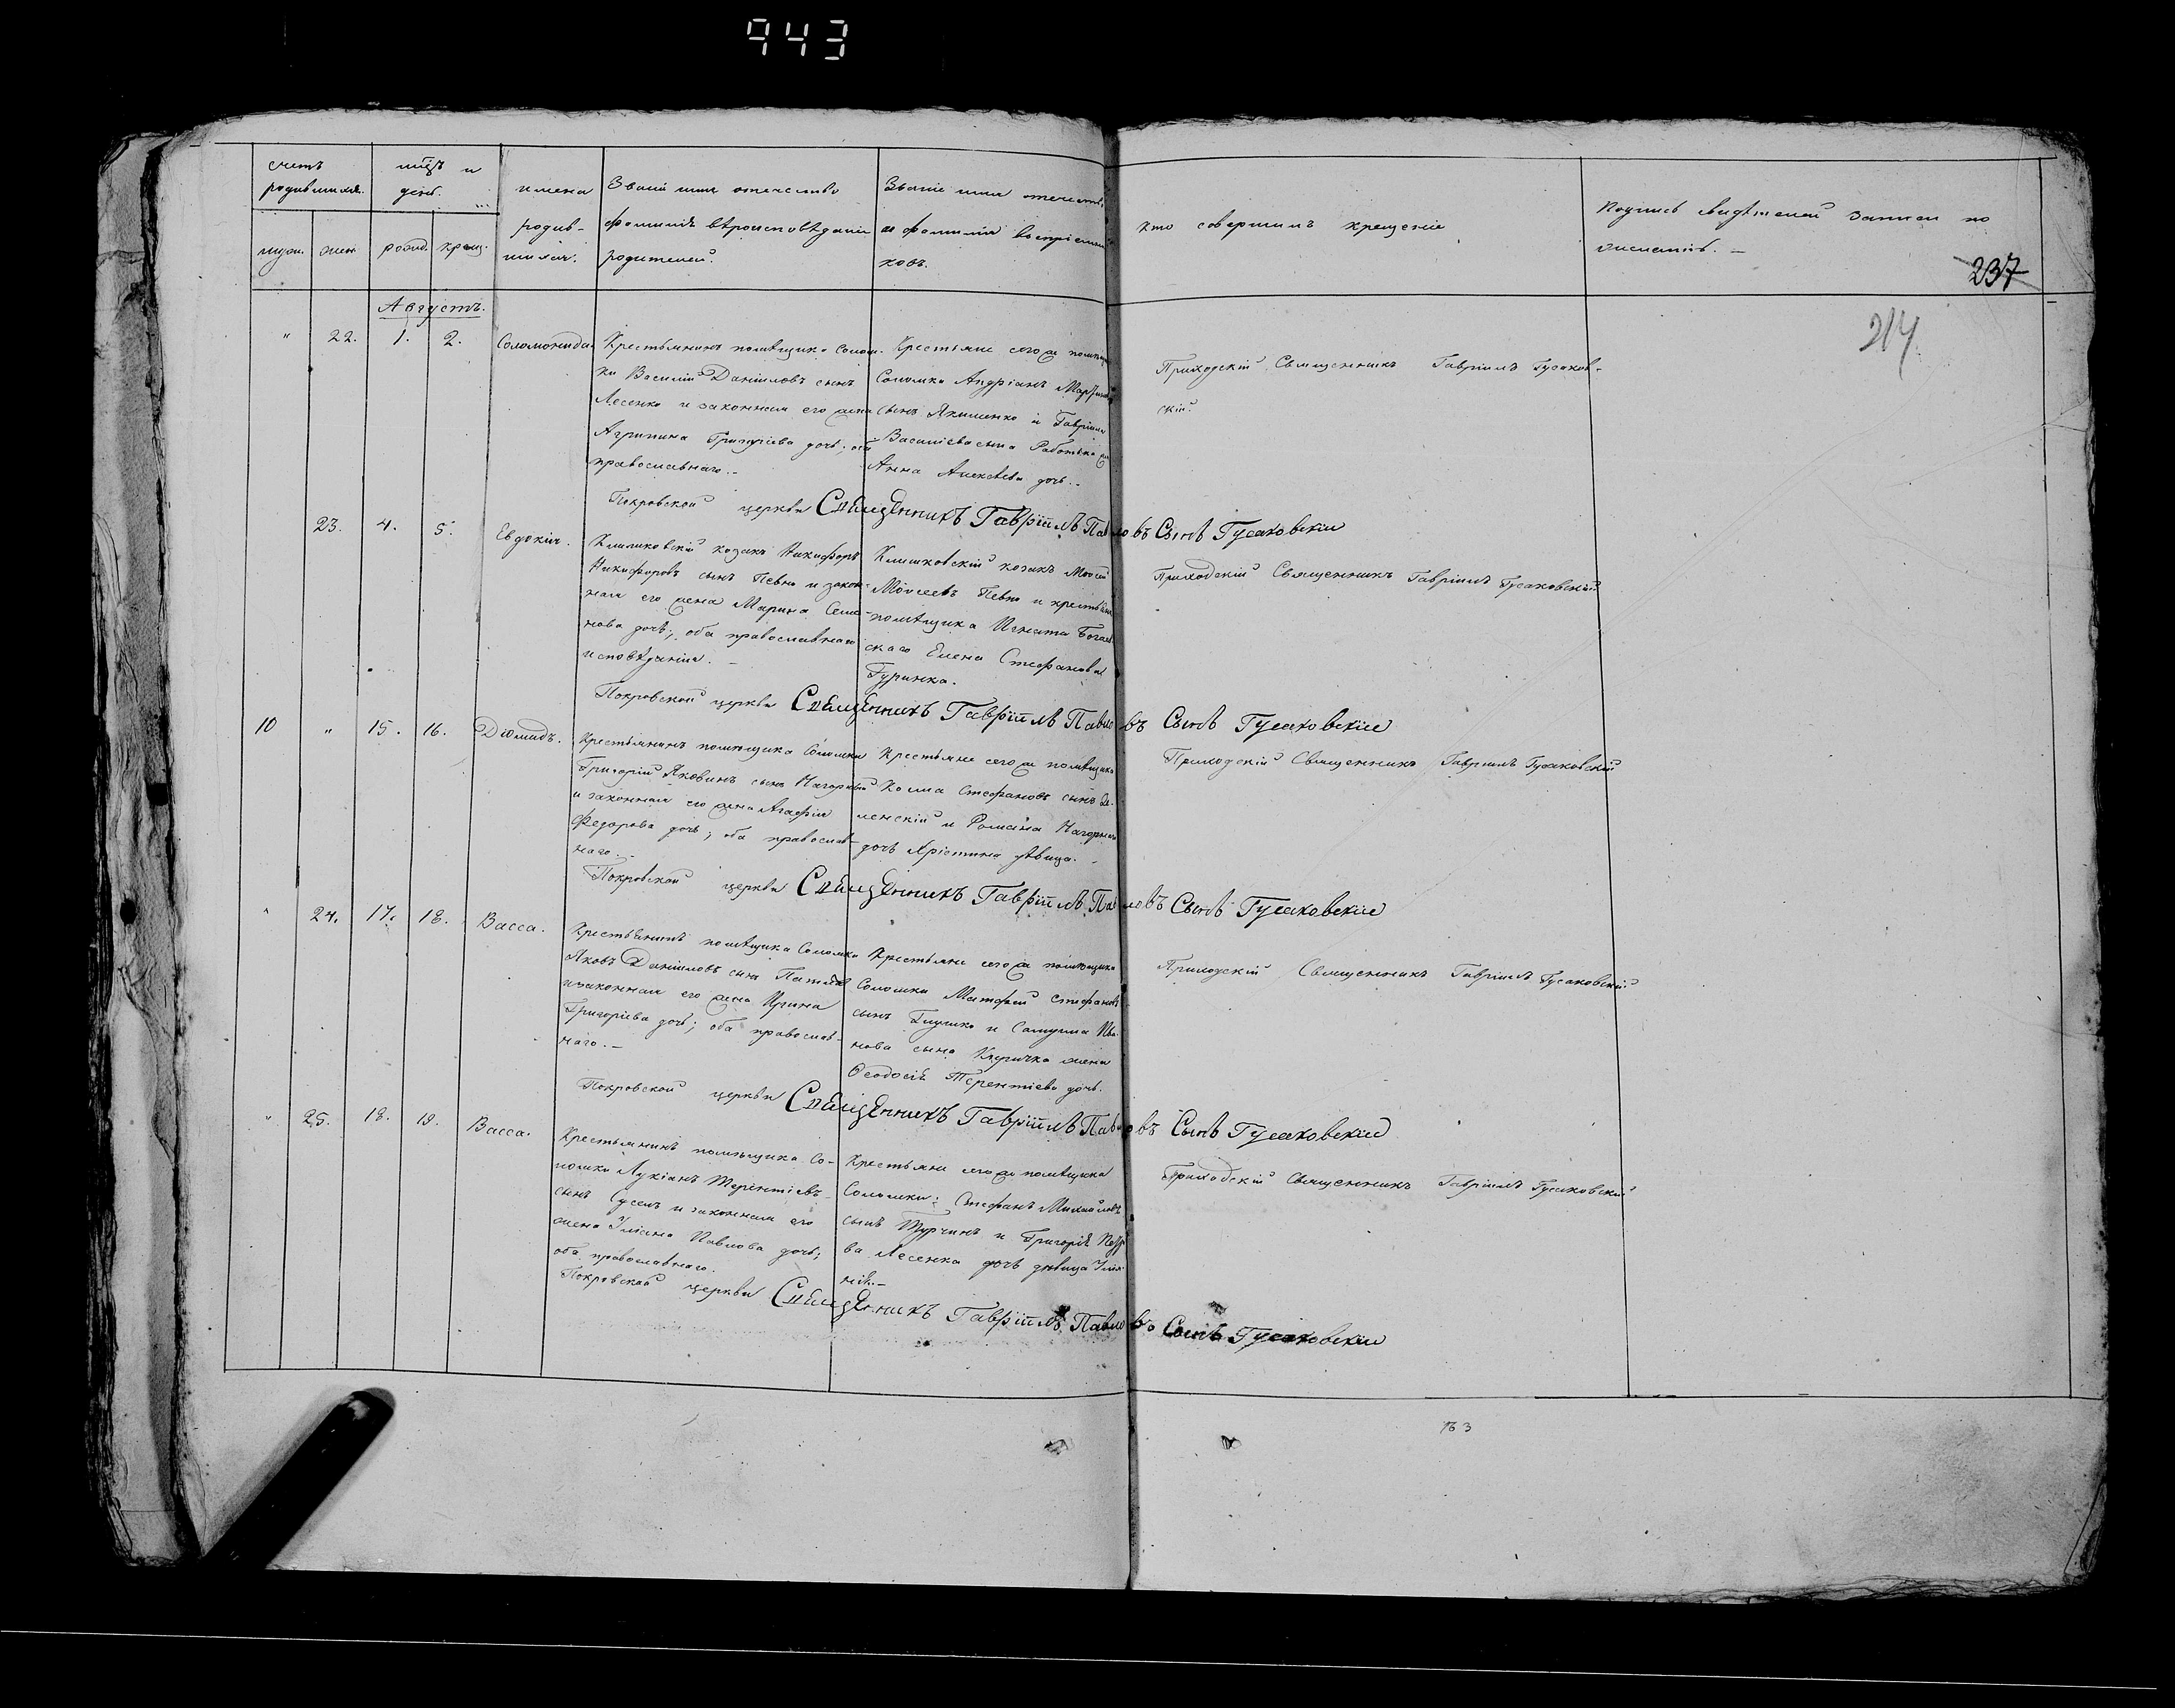 943
счетъ родившихся.
мѣсяцъ и день.
муж. жен. рожд. крещ.
имена родив-
шихся.
Званіе имя отечество
фамилія вѣроисповѣданіе
родителей.
Званіе имя отечество
и фамилія воспріемни
ковъ.
кто совершилъ крещеніе
Подпись свидѣтелей записи по
желанію. —
237
214
Августъ.
" 22. 1. 2. Соломонида.
Крестьянинъ помѣщика Солом-
ки Василій Даніиловъ сынъ
Лесенко и законная его жена
Агрипина Григоріева дочь; оба
православнаго. -
Крестьяне сего же помѣщика
Соломки Андріанъ
сынъ Якименко и Гавріила
Василіева сына жена
Анна Алексѣева дочь. -
Приходскій Священникъ Гавріилъ Гусаков-
скій
Покровской церкви Священникъ Гавріилъ Павловъ Сынъ Гусаковскій
23. 4. 5. Евдокія.
козакъ Никифоръ
Никифоровъ сынъ Певно и закон-
ная его жена Марина Семе-
нова дочь; оба православнаго
исповѣданія. -
Климковскій козакъ Моѵсей
Моѵсеевъ Певно и крестьянка
помѣщика Игната
скаго Елена Стефанова
Гуринка.
Приходскій Священникъ Гавріилъ Гусаковскій
Покровской церкви Священникъ Гавріилъ Павловъ Сынъ Гусаковскій
10 " 15. 16. Діомидъ.
Крестьянинъ помѣщика Соломки
Григорій Яковинъ сынъ Нагорный
и законная его жена Агафія
Федорова дочь; оба православ-
наго. -
Крестьяне сего же помѣщика
Козма Стефановъ сынъ
ленскій и Романа Нагорнаго
дочь Христина дѣвица. -
Приходскій Священникъ Гавріилъ Гусаковскій
Покровской церкви Священникъ Гавріилъ Павловъ Сынъ Гусаковскій
" 24. 17. 18. Васса.
Крестьянинъ помѣщика Соломки
Яковъ Даніиловъ сынъ
и законная его жена Ирина
Григоріева дочь; оба православ-
наго. —
Крестьяне сего же помѣщика
Соломки Матфей Стефановъ
сынъ Глушко и Самуила Ива-
нова сына Кыричка жена
Ѳеодосія Терентіева дочь.
Приходскій Священникъ Гавріилъ Гусаковскій
Покровской церкви Священникъ Гавріилъ Павловъ Сынъ Гусаковскій
" 25. 18. 19. Васса.
Крестьянинъ помѣщика Со-
ломки Лукіанъ Терентіевъ
сынъ и законная его
жена Уліана Павлова дочь;
оба православнаго.
Крестьяне сего же помѣщика
Соломки: Стефанъ Михайловъ
сынъ Турчинъ и Григорія
ва Лесенка дочь дѣвица Уліа-
нія. —
Приходскій Священникъ Гавріилъ Гусаковскій
Покровской церкви Священникъ Гавріилъ Павловъ Сынъ Гусаковскій